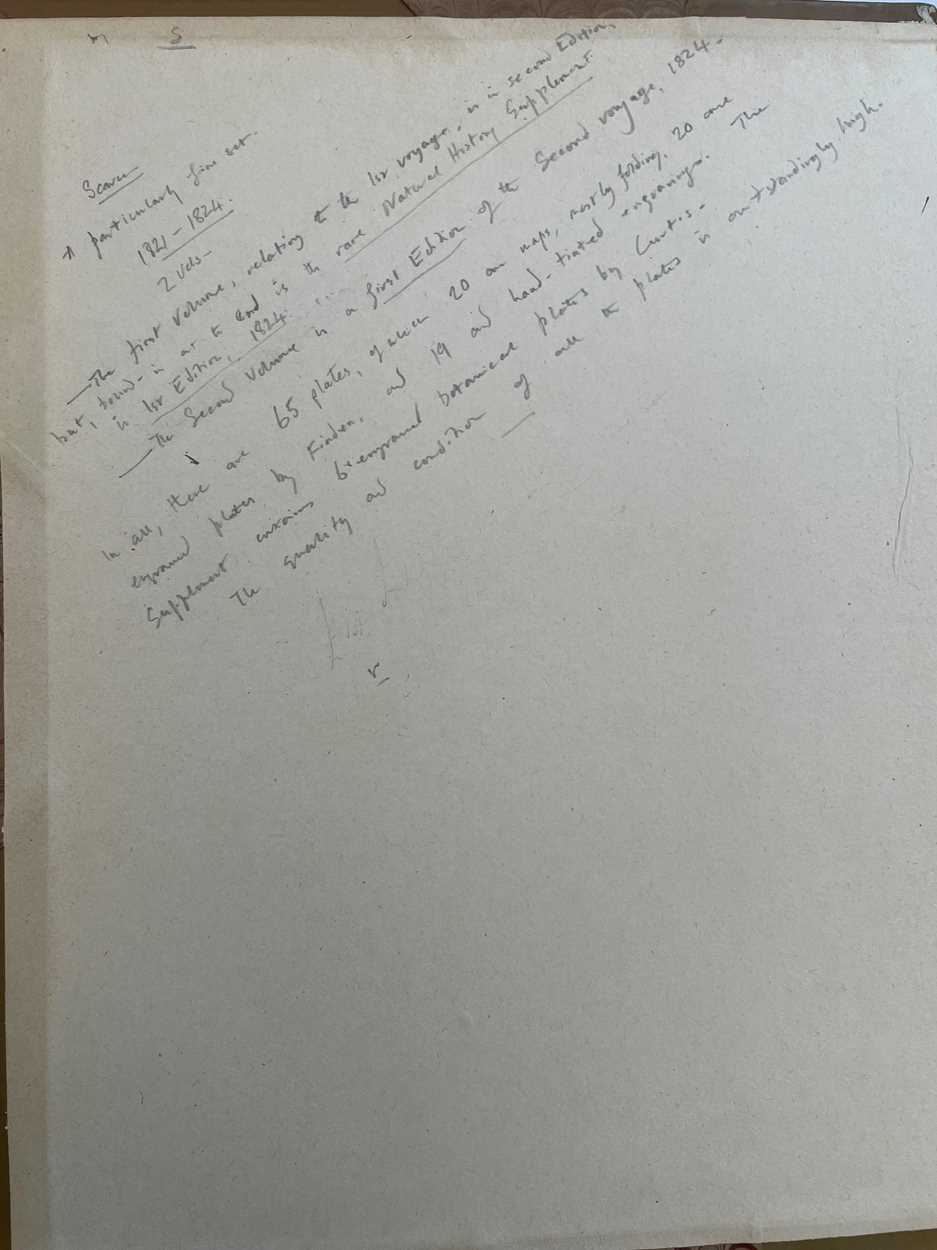 S
Scarce
A particularly fine set.
1821-1824.
2 vols-
—The first volume, relating to the 1st voyage, is in second Edition,
but, bound-in at the End is the rare Natural History Supplement
in 1st Edition, 1824.
—The Second Volume is a first Edition of the Second voyage, 1824-
In all, there are 65 plates, of which 20 are maps, mostly folding, 20 are
engraved plates by Finden, and 19 and hand-tinted engravings. The
Supplement contains 6 engraved botanical plates by Curtis-
The quality and condition of all the plates is outstandingly high.